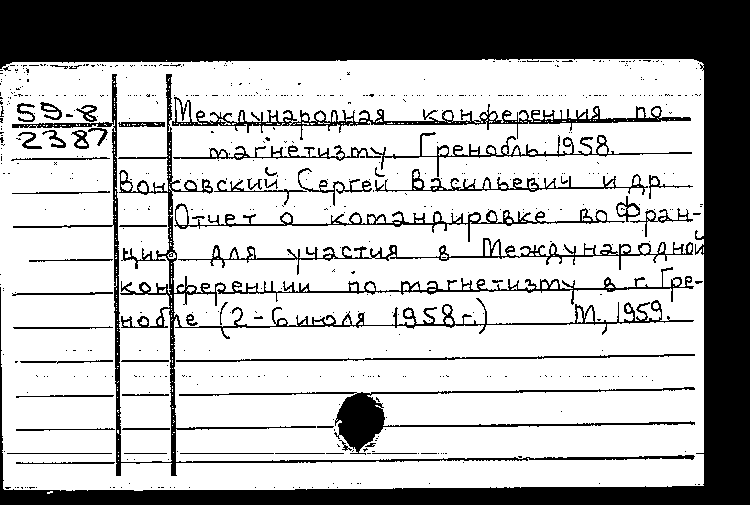 59-8
2387
Международная конференция по
магнетизму. Гренобль. 1958.
Вонсовский, Сергей Васильевич и др.
Отчет о командировке во Фран-
цию для участия в Международной
конференции по магнетизму в г. Гре-
нобле (2-6 июля 1958 г.) М., 1959.